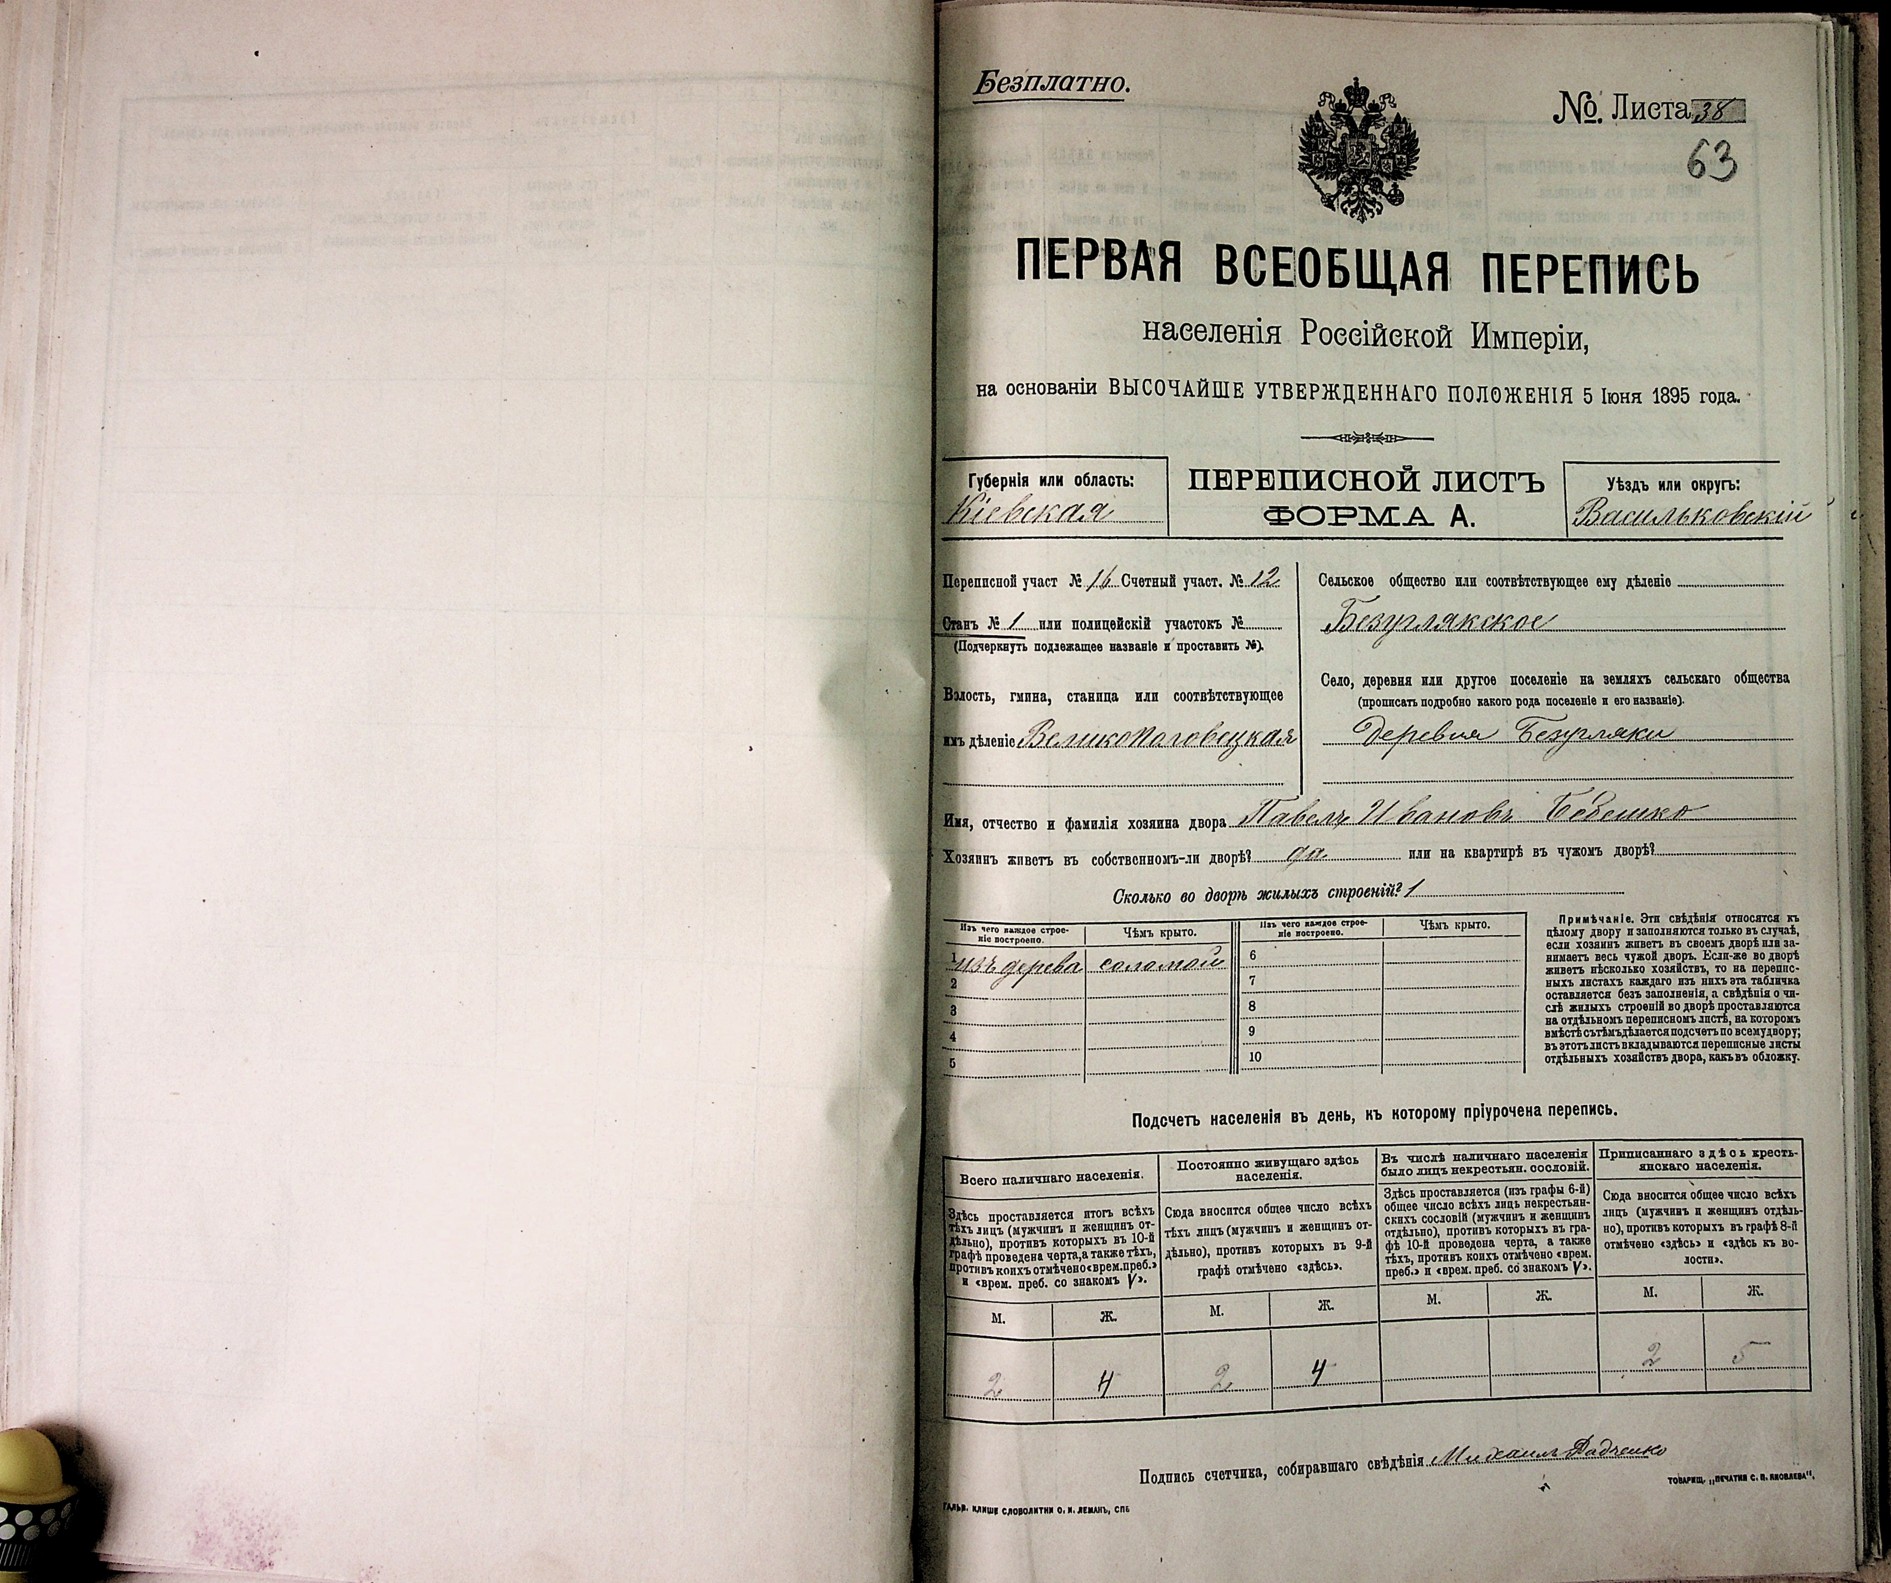 Безплатно.
№. Листа 38
63
ПЕРВАЯ ВСЕОБЩАЯ ПЕРЕПИСЬ
населенія Россійской Имперіи,
на основаніи ВЫСОЧАЙШЕ УТВЕРЖДЕННАГО ПОЛОЖЕНІЯ 5 Іюня 1895 года.
Губернія или область:
Кіевская
ПЕРЕПИСНОЙ ЛИСТЪ
ФОРМА А.
Уѣздъ или округъ:
Васильковскій
Переписной участ № 16 Счетный участ. № 12
Станъ № 1 или полицейскій участокъ №
(Подчеркнуть подлежащее названіе и проставить №).
Волость, гмина, станица или соотвѣтствующее
имъ дѣленіе Великополовецкая
Сельское общество или соотвѣтствующее ему дѣленіе
Безуглякское
Село, деревня или другое поселеніе на земляхъ сельскаго общества
(прописать подробно какого рода поселеніе и его названіе).
Деревня Безугляки
Имя, отчество и фамилія хозяина двора Павелъ Ивановъ Бебешко
Хозяинъ живетъ въ собственномъ-ли дворѣ? да или на квартирѣ въ чужомъ дворѣ?
Сколько во дворѣ жилыхъ строеній? 1
Изъ чего каждое строе-
ніе построено.
Чѣмъ крыто.
Изъ чего каждое строе-
ніе построено.
Чѣмъ крыто.
1 изъ дерева соломой
2
3
4
5
6
7
8
9
10
Примѣчаніе. Эти свѣдѣнія относятся къ
цѣлому двору и заполняются только въ случаѣ,
если хозяинъ живетъ въ своемъ дворѣ или за-
нимаетъ весь чужой дворъ. Если-же во дворѣ
живетъ нѣсколько хозяйствъ, то на перепис-
ныхъ листахъ каждаго изъ нихъ эта табличка
оставляется безъ заполненія, а свѣдѣнія о чи-
слѣ жилыхъ строеній во дворѣ проставляются
на отдѣльномъ переписномъ листѣ, на которомъ
вмѣстѣ съ тѣмъ дѣлается подсчетъ по всему двору;
въ этотъ листъ вкладываются переписные листы
отдѣльныхъ хозяйствъ двора, какъ въ обложку.
Подсчетъ населенія въ день, къ которому пріурочена перепись.
Всего наличнаго населенія.
Здѣсь проставляется итогъ всѣхъ
тѣхъ лицъ (мужчинъ и женщинъ от-
дѣльно), противъ которыхъ въ 10-й
графѣ проведена черта, а также тѣхъ,
противъ коихъ отмѣчено «врем. преб.»
и «врем. преб. со знакомъ V».
М. Ж.
2 4
Постоянно живущаго здѣсь
населенія.
Сюда вносится общее число всѣхъ
тѣхъ лицъ (мужчинъ и женщинъ от-
дѣльно), противъ которыхъ въ 9-й
графѣ отмѣчено «здѣсь».
М. Ж.
2 4
Въ числѣ наличнаго населенія
было лицъ некрестьян. сословій.
Здѣсь проставляется (изъ графы 6-й)
общее число всѣхъ лицъ некрестьян-
скихъ сословій (мужчинъ и женщинъ
отдѣльно), противъ которыхъ въ гра-
фѣ 10-й проведена черта, а также
тѣхъ, противъ коихъ отмѣчено «врем.
преб.» и «врем. преб. со знакомъ V».
М. Ж.
Приписаннаго здѣсь кресть-
янскаго населенія.
Сюда вносится общее число всѣхъ
лицъ (мужчинъ и женщинъ отдѣль-
но), противъ которыхъ въ графѣ 8-й
отмѣчено «здѣсь» и «здѣсь къ во-
лости».
М. Ж.
2 5
Подпись счетчика, собиравшаго свѣдѣнія Михаилъ Радченко
ГАЛЬВ. КЛИШЕ СЛОВОЛИТНИ О. И. ЛЕМАНЪ, СПБ
ТОВАРИЩ. „ПЕЧАТНЯ С. П. ЯКОВЛЕВА“.